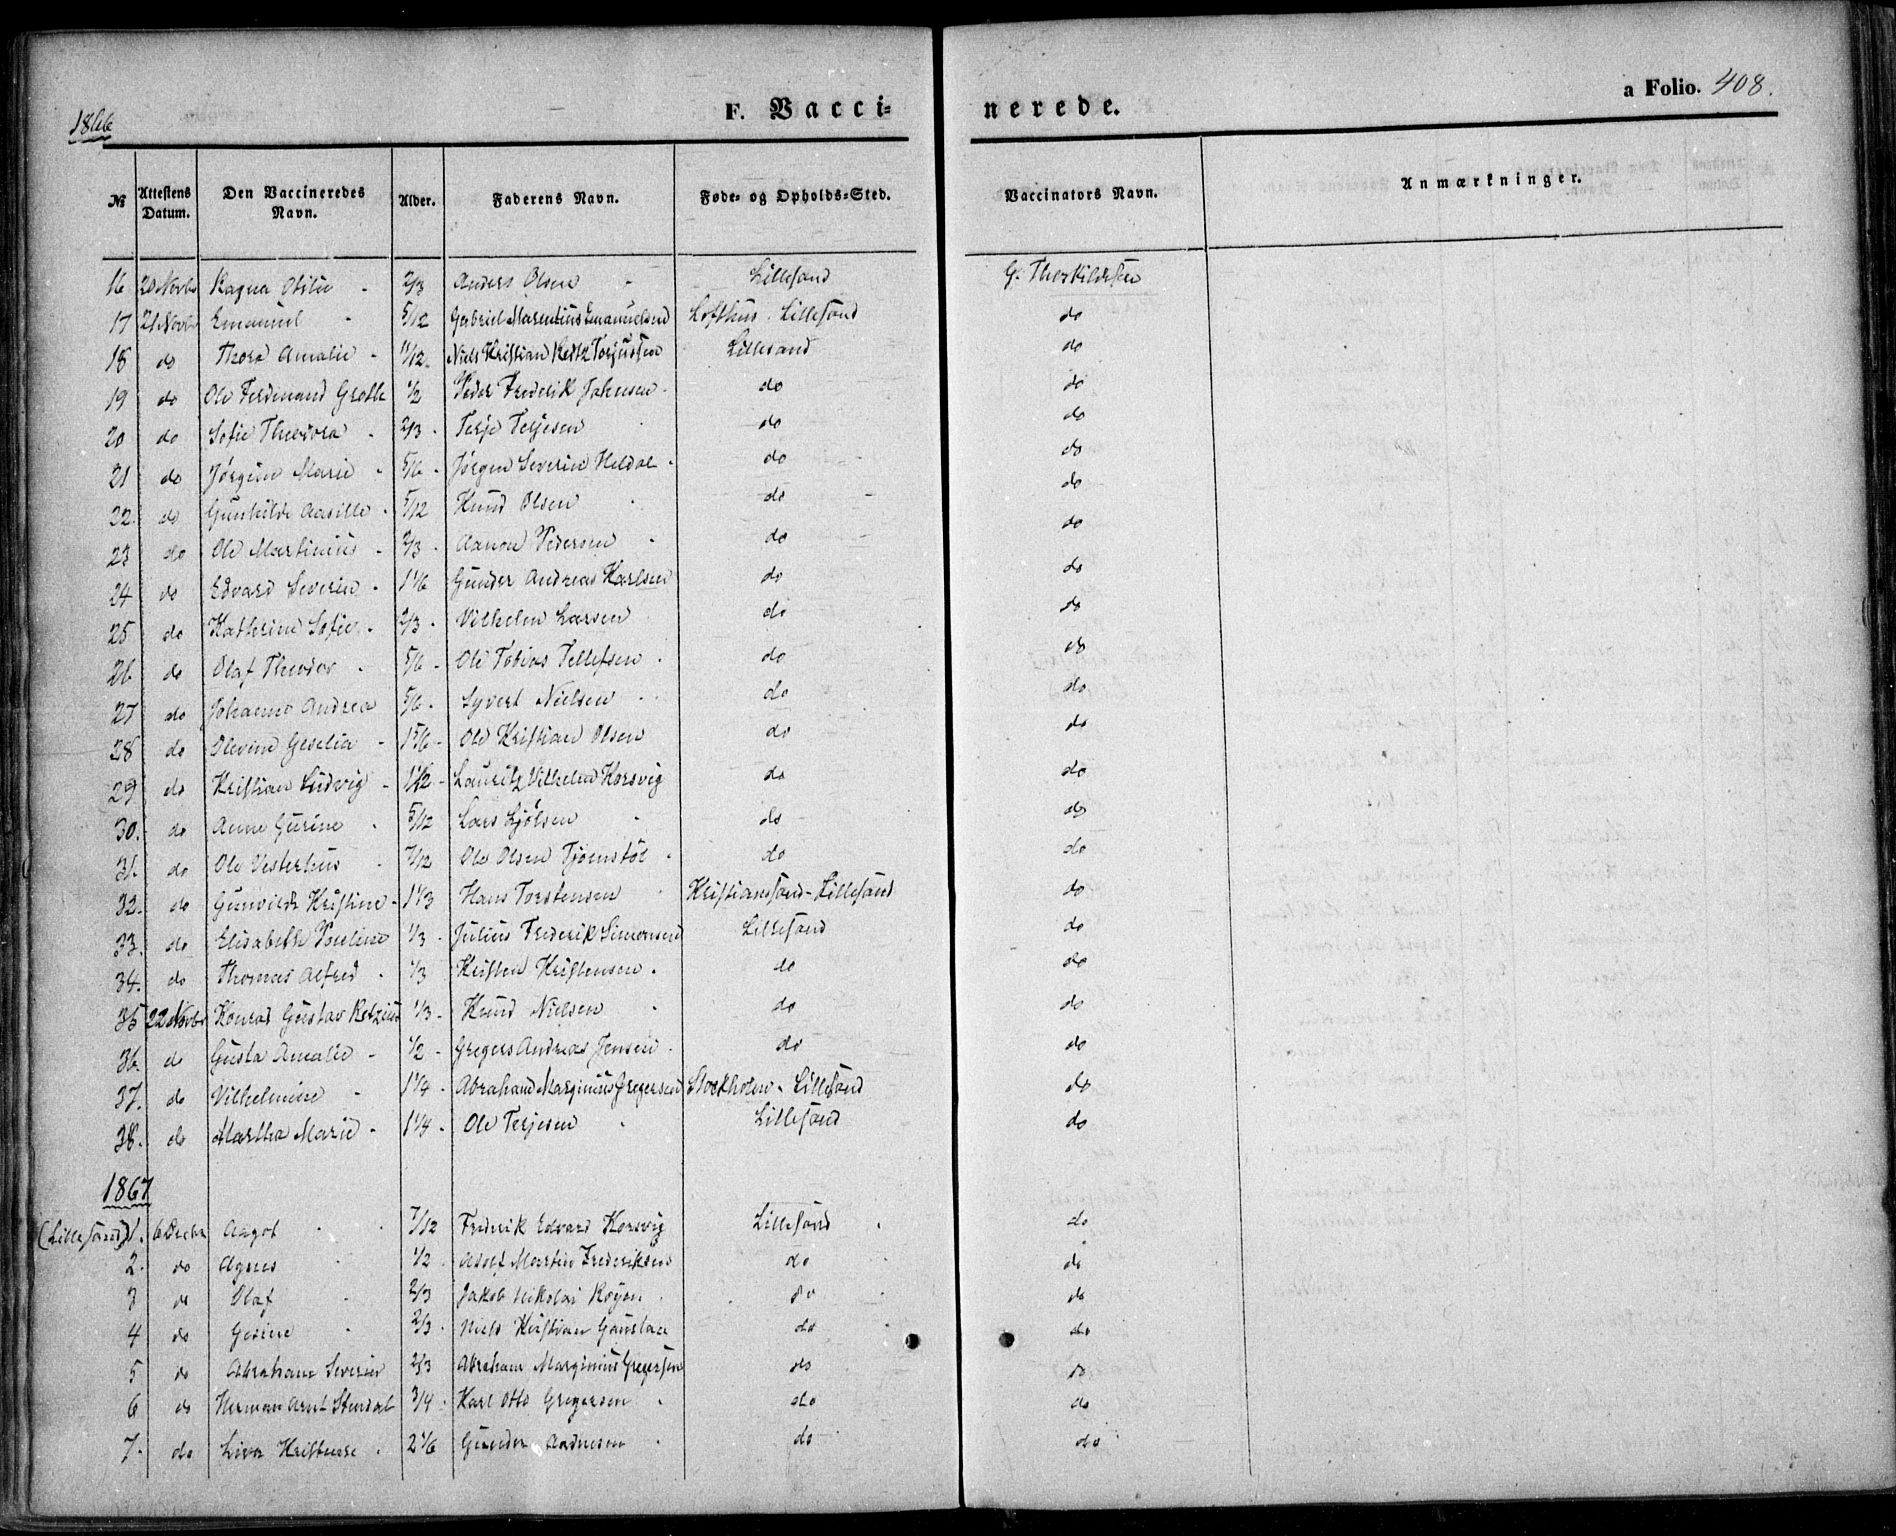 1866
F. Vacci-
nerede.
a Folio. 408.
№ Attestens Datum. Den Vaccineredes Navn. Alder. Faderens Navn. Føde- og Opholds-Sted. Vaccinators Navn. Anmærkninger.
16 20 Novbr Ragna Otilie 2/3 Anders Olsen Lillesand G. Therkildsen
17 21 Novbr Emanuel 5/12 Gabriel Marentius Emanuelsen Lofthus. Lillesand do
18 do Thora Amalie 11/12 Niels Kristian Torjussen Lillesand do
19 do Ole Ferdinand Grotle 1/2 Peder Frederik Johnsen do do
20 do Sofie Theodora 2/3 Terje Terjesen do do
21 do Jørgine Marie 5/6 Jørgen Severin Heldal do do
22. do Gunhilde Aasille 5/12 Knud Olsen do do
23 do Ole Martinius 2/3 Aanon Pedersen do do
24 do Edvard Severin 1 1/6 Gunder Andreas Karlsen do do
25 do Kathrine Sofie 2/3 Vilhelm Larsen do do
26 do Olaf Theodor 5/6 Ole Tobias Tellefsen do do
27 do Johanne Andrea 5/6 Syvert Nielsen do do
28 do Olevine Geselia 1 5/6 Ole Kristian Olsen do do
29 do Kristian Ludvig 1 1/12 Lauritz Vilhelm Korsvig do do
30. do Anne Gurine 5/12 Lars Ljølsen do do
31. do Ole Vesterhus 7/12 Ole Olsen Tjømstøl do do
32. do Gunvilde Kristine 1 1/3 Hans Torstensen Kristianssand - Lillesand do
33. do Elisabeth Pouline 1/3 Julius Frederik Simonsen Lillesand do
34. do Thomas Alfred 1/3 Kristen Kristensen do do
35 22 Novbr Konrad Gustav Retzius 1/3 Knud Nielsen do do
36. do Gusta Amalie 1/2 Gregers Andreas Jensen do do
37. do Vilhelmine 1 1/4 Abraham Marginius Gregersen Stockholm - Lillesand do
38. do Martha Marie 1 1/4 Ole Terjesen Lillesand do
1867
(Lillesand) 1. 6 Decbr Aagot 7/12 Frederik Edvard Korsvig Lillesand do
2. do Agnes 1/2 Adolf Martin Frederiksen do do
3 do Olaf 2/3 Jakob Nikolai Røyen do do
4 do Gesine 2/3 Niels Kristian Gaustad do do
5 do Abraham Severin 2/3 Abraham Marginius Gregersen do do
6 do Herman Arnt Stendal 3/4 Karl Otto Gregersen do do
7. do Liva Kristense 2 1/6 Gunder Aadnesen do do